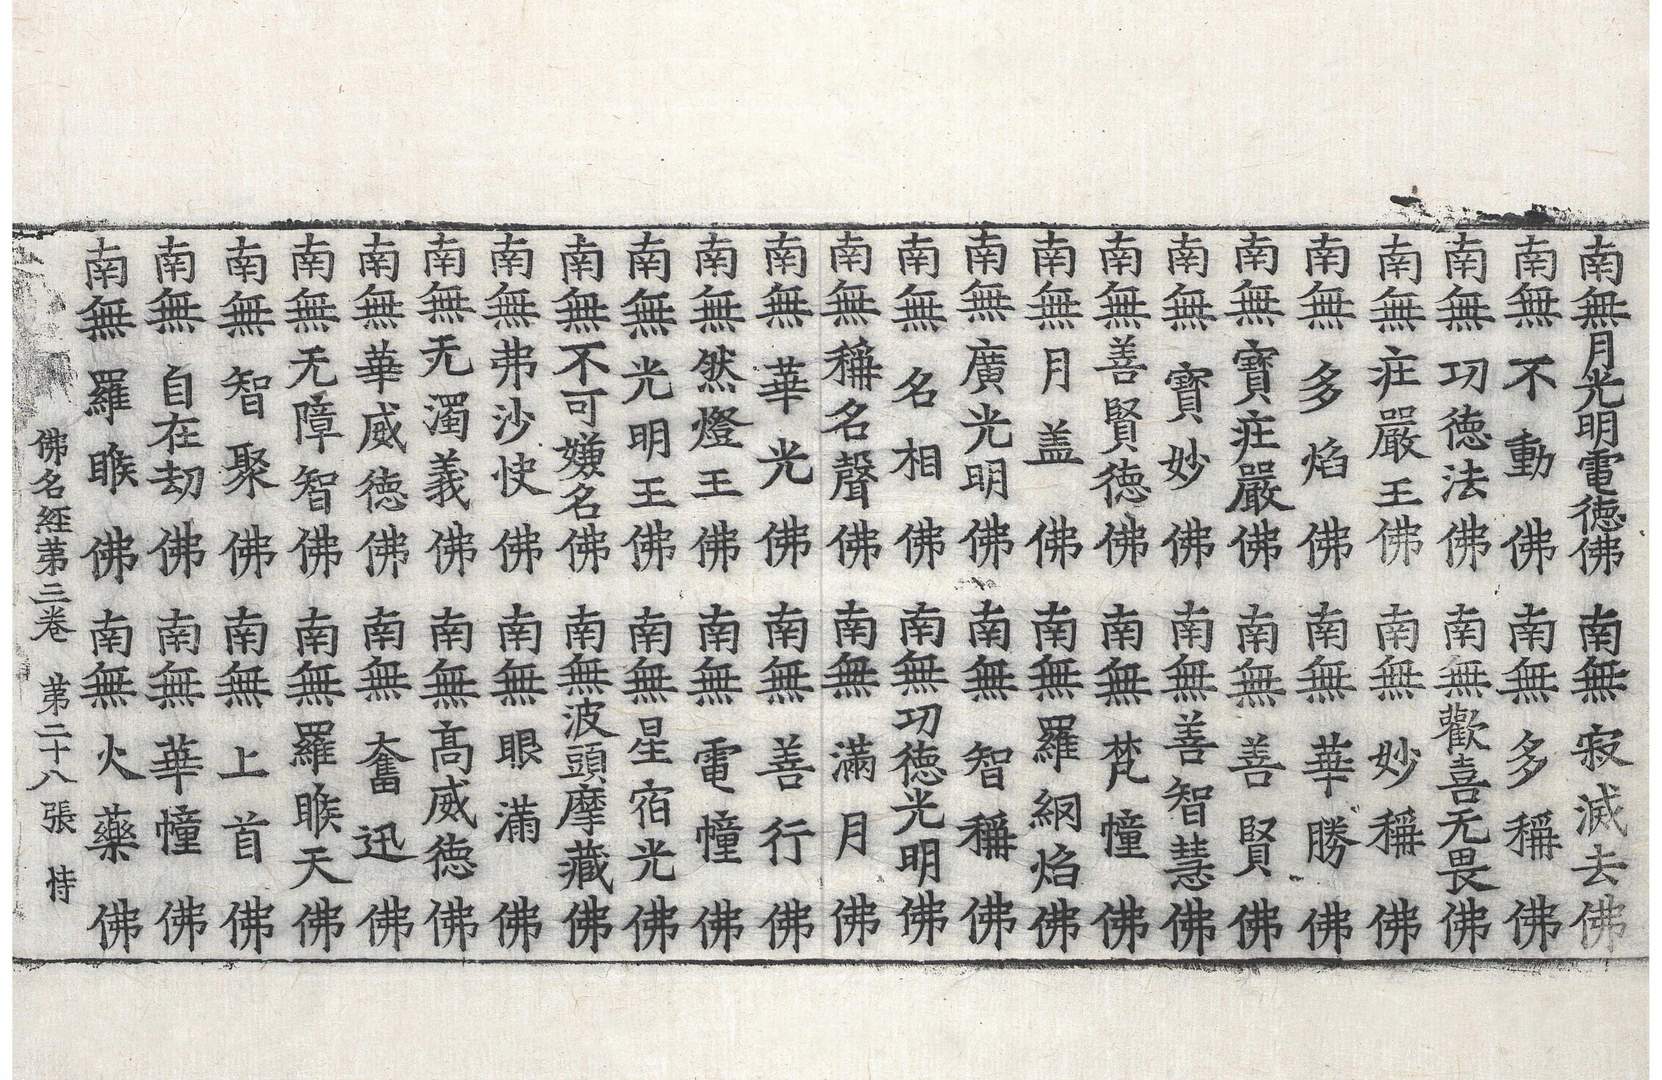 南無月光明電徳佛 南無寂滅去佛
南無不動佛 南無多稱佛
南無功徳法佛 南無歡喜无畏佛
南無庄嚴王佛 南無妙稱佛
南無多焰佛 南無華勝佛
南無寶庄嚴佛 南無善賢佛
南無寶妙佛 南無善智慧佛
南無善賢徳佛 南無梵幢佛
南無月盖佛 南無羅網焰佛
南無廣光明佛 南無智稱佛
南無名相佛 南無功徳光明佛
南無稱名聲佛 南無滿月佛
南無華光佛 南無善行佛
南無然燈王佛 南無電幢佛
南無光明王佛 南無星宿光佛
南無不可嫌名佛 南無波頭摩藏佛
南無弗沙佛 南無眼滿佛
南無无濁義佛 南無髙威徳佛
南無華威徳佛 南無奮迅佛
南無无障智佛 南無羅睺天佛
南無智聚佛 南無上首佛
南無自在劫佛 南無華幢佛
南無羅睺佛 南無火藥佛
佛名經第三卷 第二十八張 恃